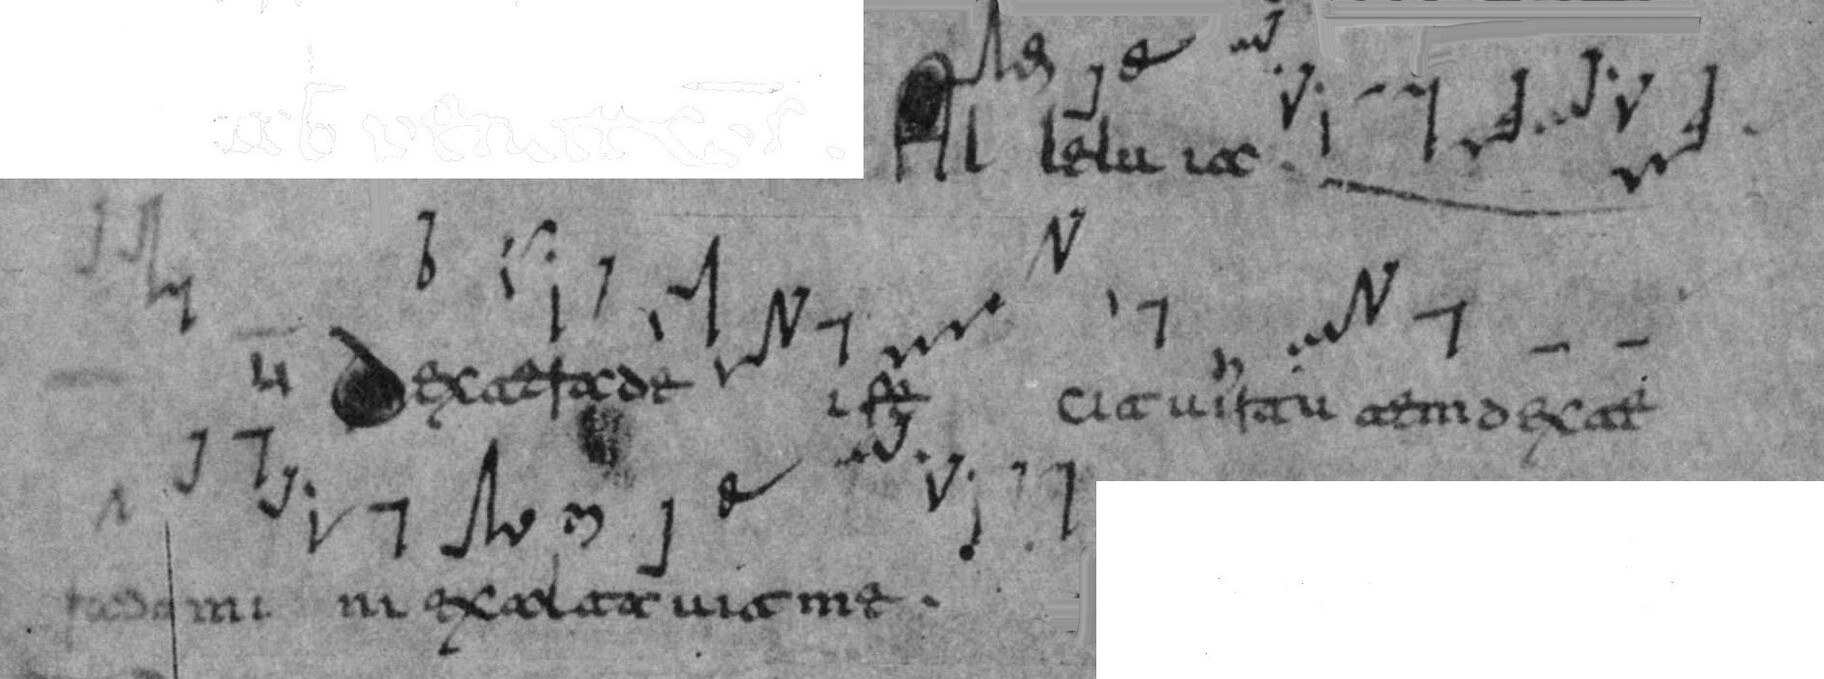 Al lelu ia.
Dextera de i fe cit uirtu tem dexte
ra do mi ni exaltauit me.